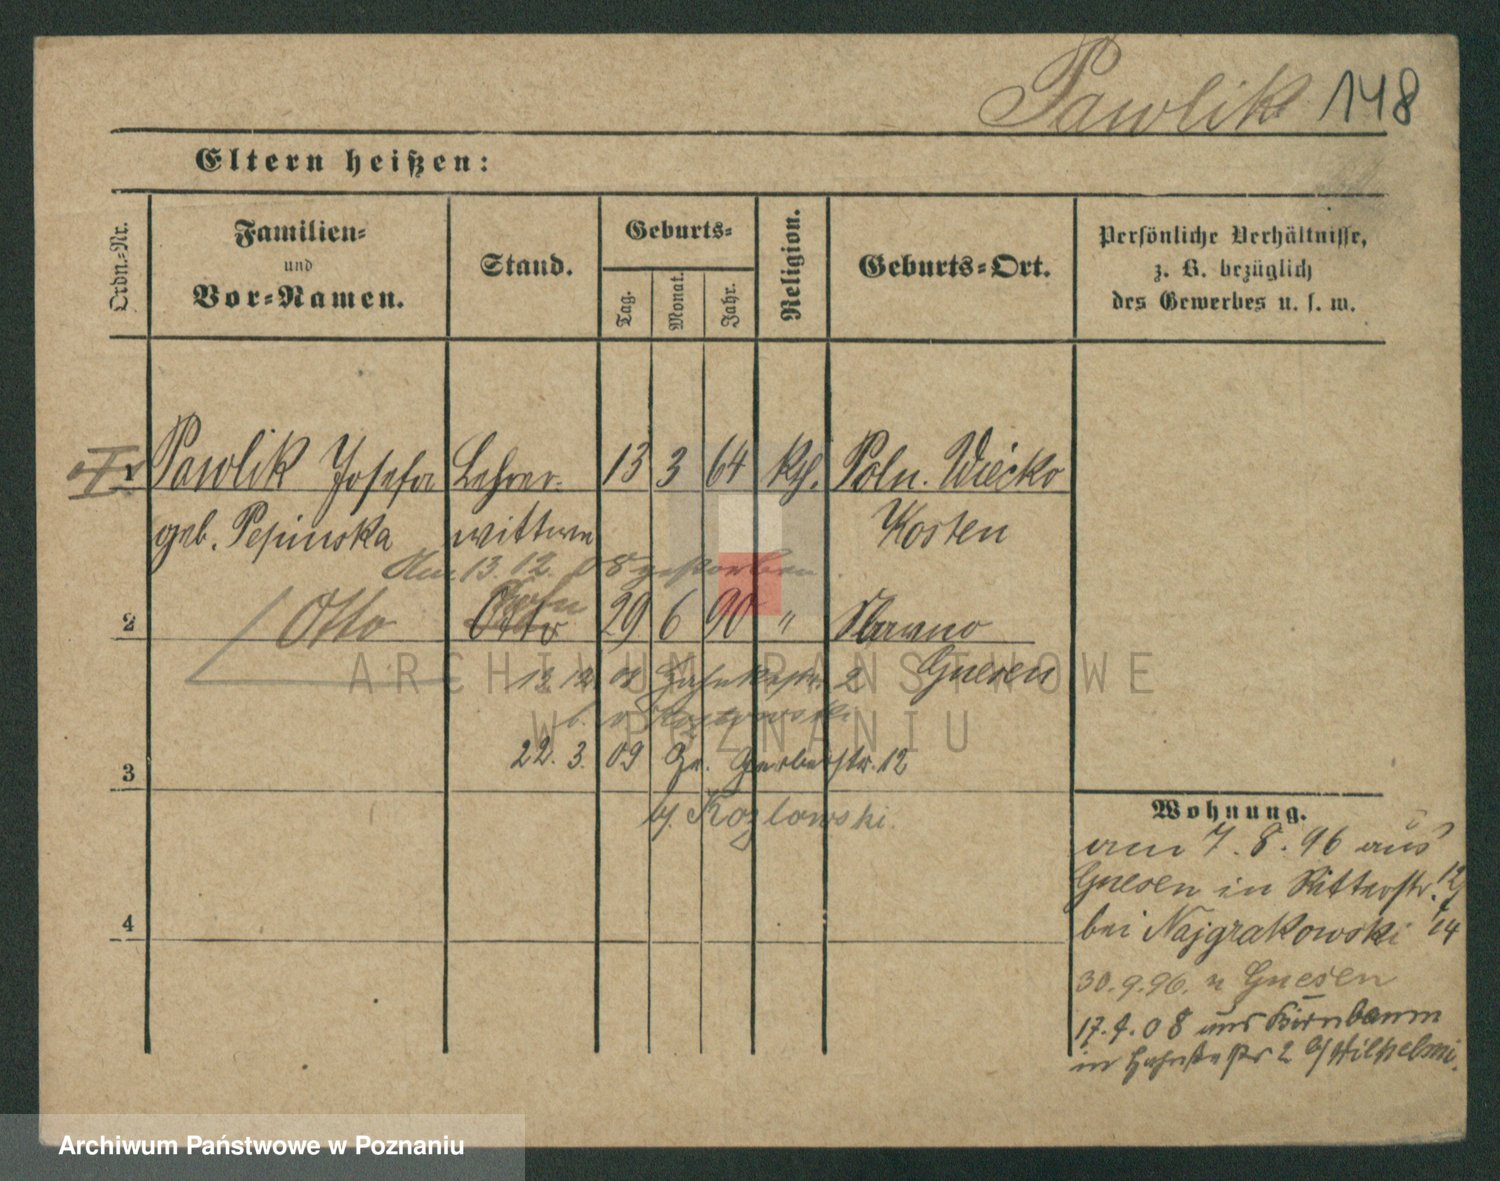 Pawlik 148
Eltern heißen:
Ordn.-Nr.
Familien-
und
Vor-Namen.
Stand.
Geburts-
Tag.
Monat.
Jahr.
Religion.
Geburts-Ort.
Persönliche Verhältnisse,
z. B. bezüglich
des Gewerbes u. s. w.
1 Pawlik Josefa Lehrer- 13 3 64 kth. Poln. Wiecko
geb. Pepinska wittwe Kosten
Am 13.12. 08 gestorben
Sohn
2 Otto Otto 29 6 90 " Slawno
12 12 08 2 Gnesen
22. 3. 09 Gr. Gerberstr. 12
3
b/ Kozlowski.
4
Wohnung.
am 7. 8. 96 aus
Gnesen in Ritterstr. 12
bei Najgrakowski 14
30.9.96. n Gnesen
17.4.08 aus Birnbaum
in 2 b/ Wilhelmi.
ARCHIWUM PAŃSTWOWE
W POZNANIU
Archiwum Państwowe w Poznaniu